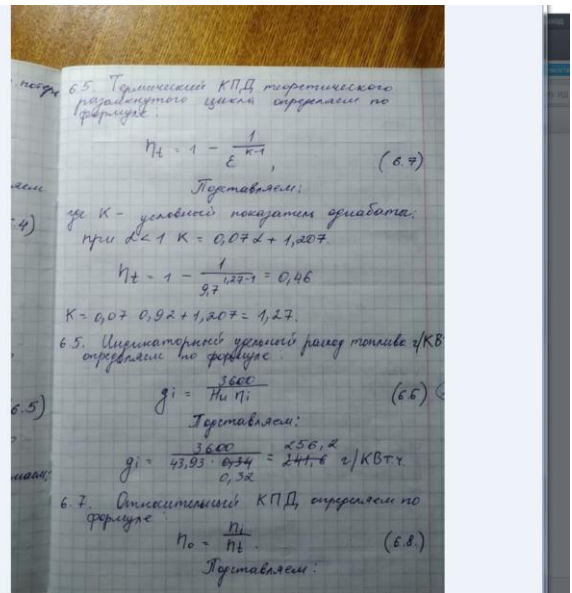 6.5. Термический КПД теоретического
разомкнутого цикла определяем по
формуле:
ηt = 1 − 1/ε^(к-1), (6.7)
Подставляем:
где К - условный показатель адиабаты;
при α<1 К = 0,07α + 1,207.
ηt = 1 − 1/9,7^(1,27-1) = 0,46
К = 0,07 0,92 + 1,207 = 1,27.
6.5. Индикаторный удельный расход топлива г/КВ
определяем по формуле:
gi = 3600/(Hu ηi) (6.6)
Подставляем:
gi = 3600/(43,93 · 0,34 0,32) = 256,2 241,6 г/КВт.ч
6.7. Относительный КПД, определяем по
формуле:
η0 = ηi/ηt. (6.8.)
Подставляем:
6.4)
6.5)